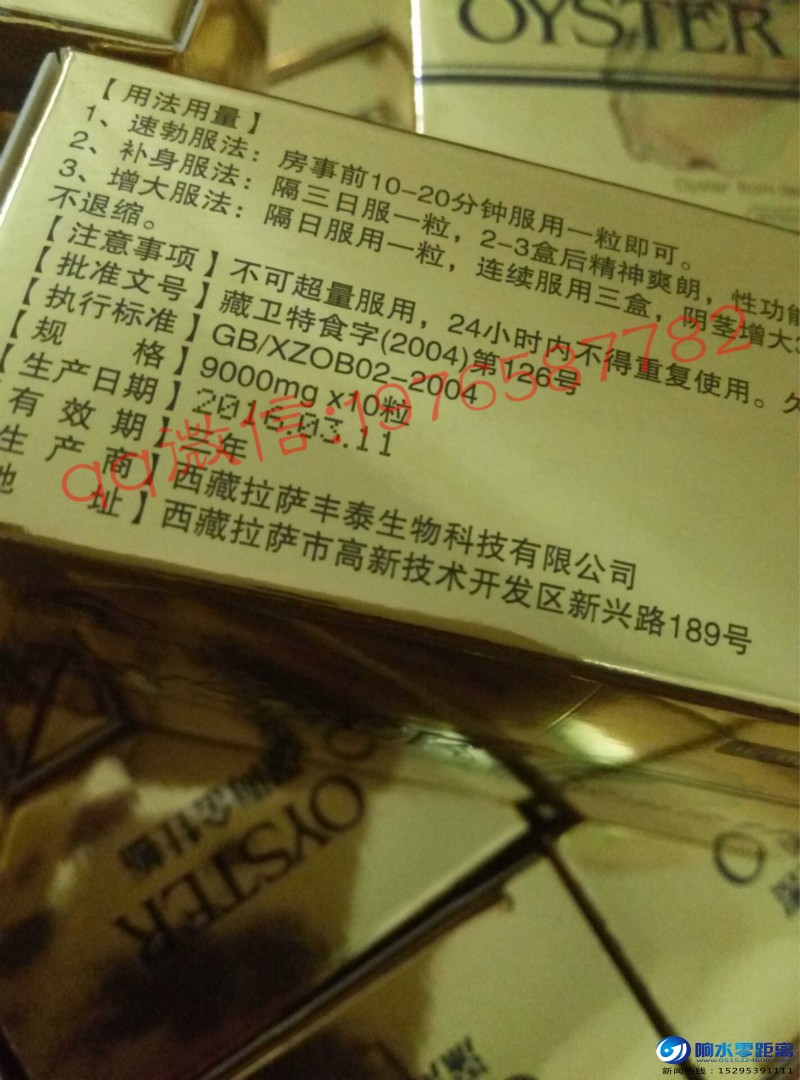 OYSTER
【用法用量】
1、速勃服法：房事前10-20分钟服用一粒即可。
2、补身服法：隔三日服一粒，2-3盒后精神爽朗，性功能
3、增大服法：隔日服用一粒，连续服用三盒，阴茎增大3
不退缩。
【注意事项】不可超量服用，24小时内不得重复使用。久
【批准文号】藏卫特食字(2004)第126号
【执行标准】GB/XZOB02-2004
【规 格】9000mg x10粒
【生产日期】2016.03.11
【有效期】三年
生产商】西藏拉萨丰泰生物科技有限公司
地 址】西藏拉萨市高新技术开发区新兴路189号
qq微信:1976587782
OYSTER
响水零距离
www.0515224600.com
新闻热线：15295391111